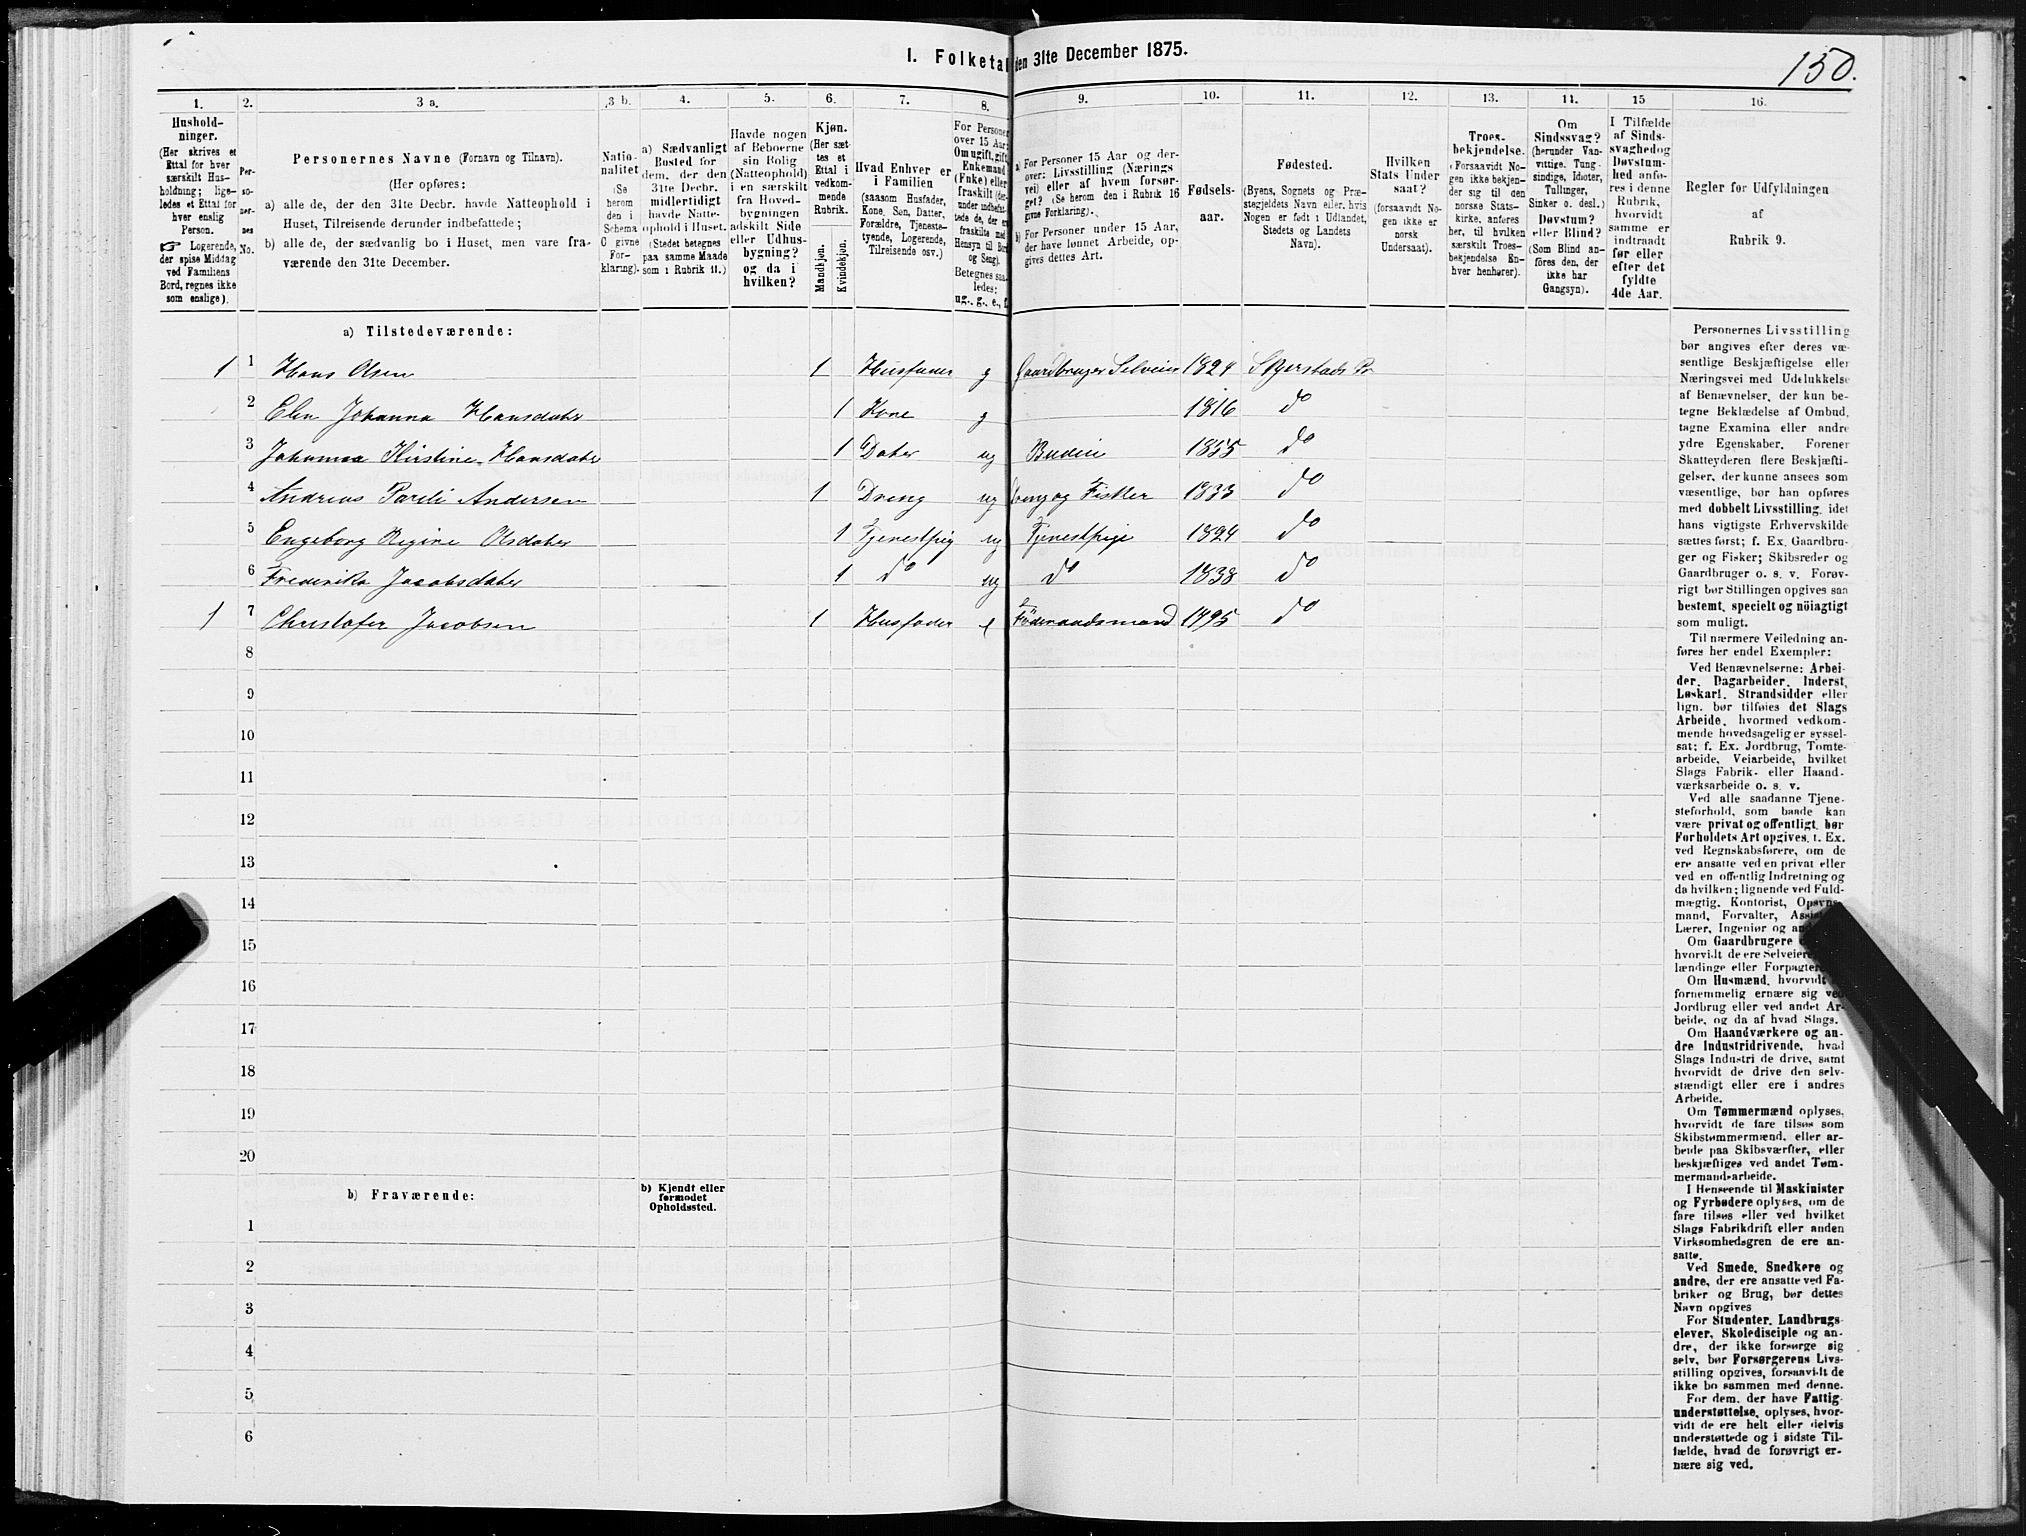 150.
1. Folketal den 31te December 1875.
1. 2. 3 a. 3 b. 4. 5. 6. 7. 8. 9. 10. 11. 12. 13. 14. 15 16.
Hushold-
ninger.
(Her skrives et
Ettal for hver
særskilt Hus-
holdning; lige-
ledes et Ettal for
hver enslig
Person.
☞ Logerende,
der spise Middag
ved Familiens
Bord, regnes ikke
som enslige).
Per-
so-
ner-
nes
No.
Personernes Navne (Fornavn og Tilnavn).
(Her opføres:
a) alle de, der den 31te Decbr. havde Natteophold i
Huset, Tilreisende derunder indbefattede;
b) alle de, der sædvanlig bo i Huset, men vare fra-
værende den 31te December.
Natio-
nalitet
(Se
herom
den i
Schema
C givne
For-
klaring).
a) Sædvanligt
Bosted for
dem, der den
31te Decbr.
midlertidigt
havde Natte-
ophold i Huset.
(Stedet betegnes
paa samme Maade
som i Rubrik 11.)
Havde nogen
af Beboerne
sin Bolig
(Natteophold)
i en særskilt
fra Hoved-
bygningen
adskilt Side
eller Udhus-
bygning?
og da i
hvilken?
Kjøn.
(Her sæt-
tes et
Ettal i
vedkom-
mende
Rubrik.
Mandkjøn.
Kvindekjøn.
Hvad Enhver er
i Familien
(saasom Husfader,
Kone, Søn, Datter,
Forældre, Tjeneste-
tyende, Logerende,
Tilreisende osv.)
For Personer
over 15 Aar:
Om ugift, gift,
Enkemand
(Enke) eller
fraskilt (der-
under indbefat-
tede de, der ere
fraskilte med
Hensyn til Bord
og Seng).
Betegnes saa-
ledes:
ug., g., e., f.
a) For Personer 15 Aar og der-
over: Livsstilling (Nærings
vei) eller af hvem forsør-
get? (Se herom den i Rubrik 16
givne Forklaring).
b) For Personer under 15 Aar,
der have lønnet Arbeide, op-
gives dettes Art.
Fødsels-
aar.
Fødested.
(Byens, Sognets og Præ-
stegjeldets Navn eller, hvis
Nogen er født i Udlandet,
Stedets og Landets
Navn).
Hvilken
Stats Under
saat?
(forsaavidt No-
gen ikke er
norsk
Undersaat).
Troes-
bekjendelse.
(Forsaavidt No-
gen ikke bekjen-
der sig til den
norske Stats-
kirke, anføres
her, til hvilken
særskilt Troes-
bekjendelse En-
hver henhører).
Om
Sindssvag?
(herunder Van-
vittige, Tung-
sindige, Idioter,
Tullinger,
Sinker o. desl.)
Døvstum?
eller Blind?
(Som Blind an-
føres den, der
ikke har
Gangsyn).
I Tilfælde
af Sinds-
svaghed og
Døvstum-
hed anfø-
res i denne
Rubrik,
hvorvidt
samme er
indtraadt
før eller
efter det
fyldte
4de Aar.
Regler for Udfyldningen
af
Rubrik 9.
a) Tilstedeværende:
1 1 Hans Olsen 1 Husfader g Gaardbruger Selveier 1824 Skjerstads Pr
2 Elen Johanna Hansdater 1 Kone g 1816 do
3 Johanna Kirstine Hansdater 1 Dater ug Budeie 1855 do
4 Andreas Pareli Andersen 1 Dreng ug Dreng og Fisker 1833 do
5 Engeborg Regine Olsdater 1 Tjenestpig ug Tjenestpige 1824 do
6 Frederika Jacobsdater 1 do ug do 1838 do
1 7 Christofer Jacobsen 1 Husfader e Föderaadsmand 1795 do
8
9
10
11
12
13
14
15
16
17
18
19
20
b) Fraværende:
b) Kjendt eller
formodet
Opholdssted.
1
2
3
4
5
6
Personernes Livsstilling
bør angives efter deres væ-
sentlige Beskjæftigelse eller
Næringsvei med Udelukkelse
af Benævnelser, der kun be-
tegne Beklædelse af Ombud,
tagne Examina eller andre
ydre Egenskaber. Forener
Skatteyderen flere Beskjæfti-
gelser, der kunne ansees som
væsentlige, bør han opføres
med dobbelt Livsstilling, idet
hans vigtigste Erhvervskilde
sættes først; f. Ex. Gaardbru-
ger og Fisker; Skibsreder og
Gaardbruger o. s. v. Forøv-
rigt bør Stillingen opgives saa
bestemt, specielt og nöiagtigt
som muligt.
Til nærmere Veiledning an-
føres her endel Exempler:
Ved Benævnelserne: Arbei-
der, Dagarbeider, Inderst,
Løskarl, Strandsidder eller
lign. bør tilføies det Slags
Arbeide, hvormed vedkom-
mende hovedsagelig er syssel-
sat; f. Ex. Jordbrug, Tomte-
arbeide, Veiarbeide, hvilket
Slags Fabrik- eller Haand-
værksarbeide o. s. v.
Ved alle saadanne Tjene-
steforhold, som baade kan
være privat og offentligt, bør
Forholdets Art opgives, t. Ex.
ved Regnskabsførere, om de
ere ansatte ved en privat eller
ved en offentlig Indretning og
da hvilken; lignende ved Fuld-
mægtig, Kontorist, Opsyns-
mand, Forvalter,
Lærer, Ingeniør og
Om Gaardbrugere
hvorvidt de ere Selveiere,
lændinge eller Forpagtere
Om Husmænd, hvorvidt
fornemmelig ernære sig ved
Jordbrug eller ved andet Ar-
beide, og da af hvad Slags.
Om Haandværkere og an-
dre Industridrivende, hvad
Slags Industri de drive, samt
hvorvidt de drive den selv-
stændigt eller ere i andres
Arbeide.
Om Tømmermænd oplyses,
hvorvidt de fare tilsøs som
Skibstømmermænd, eller ar-
beide paa Skibsværfter, eller
beskjæftiges ved andet Tøm-
mermandsarbeide.
I Henseende til Maskinister
og Fyrbødere oplyses, om de
fare tilsøs eller ved hvilket
Slags Fabrikdrift eller anden
Virksomhedsgren de ere an-
satte.
Ved Smede, Snedkere og
andre, der ere ansatte ved Fa-
briker og Brug, bør dettes
Navn opgives
For Studenter, Landbrugs-
elever, Skoledisciple og an-
dre, der ikke forsørge sig
selv, bør Forsørgerens Livs-
stilling opgives, forsaavidt de
ikke bo sammen med denne.
For dem, der have Fattig-
understøttelse, oplyses, hvor-
vidt de ere helt eller delvis
understøttede og i sidste Til-
fælde, hvad de forøvrigt er-
nære sig ved.